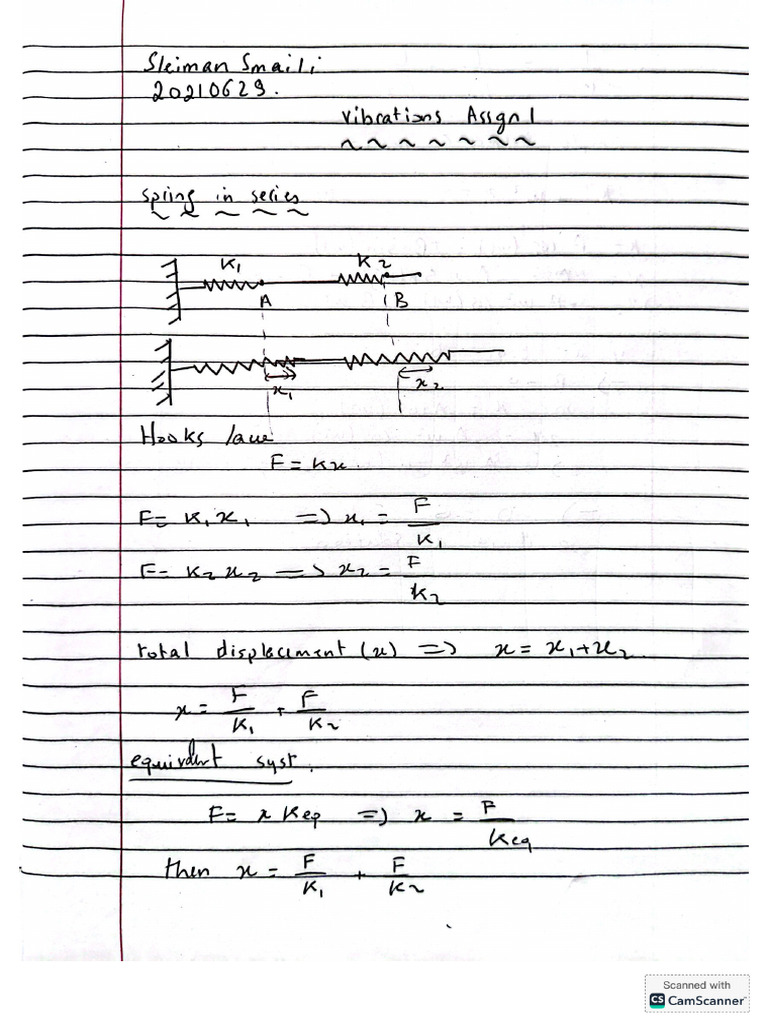 Sleiman Smaili
20210629.
Vibrations Assgn 1
spring in series
K1 K2
A B
x1 x2
Hooks law
F = Kx.
F = K1 x1 => x1 = F/K1
F = K2 x2 => x2 = F/K2
total displacement (x) => x = x1 + x2.
x = F/K1 + F/K2
equivalent syst.
F = x Keq => x = F/Keq
then x = F/K1 + F/K2
Scanned with
CS CamScanner